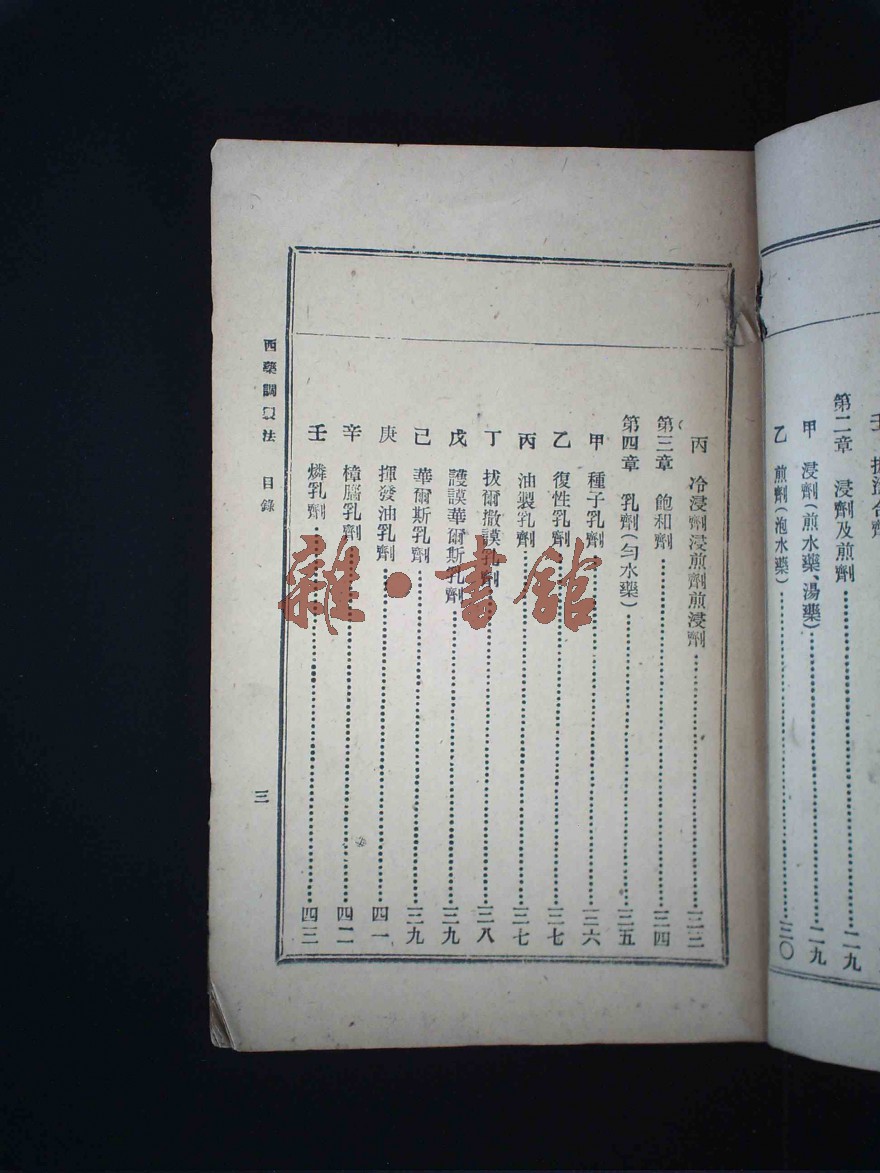 第二章　浸劑及煎劑……二九
甲　浸劑（煎水藥、湯藥）……二九
乙　煎劑（泡水藥）……三〇
丙　冷浸劑浸煎劑煎浸劑……三三
第三章　飽和劑……三四
第四章　乳劑（勻水藥）……三五
甲　種子乳劑……三六
乙　復性乳劑……三七
丙　油製乳劑……三七
丁　拔爾撒謨乳劑……三八
戊　護謨華爾斯乳劑……三九
己　華爾斯乳劑……三九
庚　揮發油乳劑……四一
辛　樟腦乳劑……四二
壬　燐乳劑……四三
西藥調製法　目錄
三
雜·書館